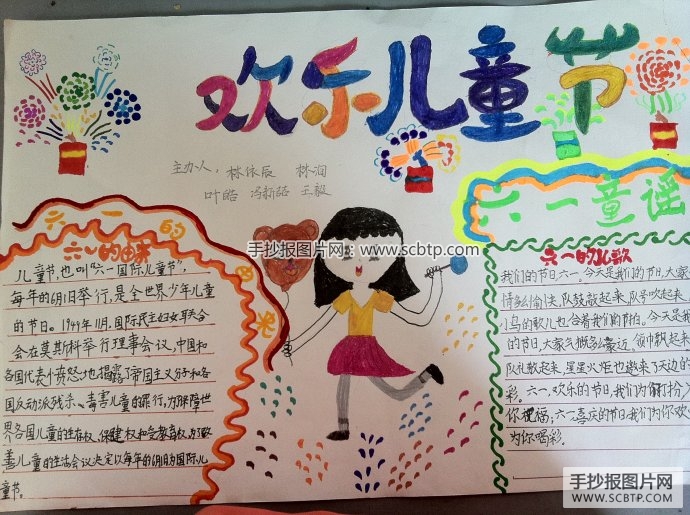 欢乐儿童节
主办人：林依辰 林润
叶皓 冯新政 王毅
六一的
六一的由来
儿童节，也叫“六一国际儿童节”，
每年的6月1日举行，是全世界少年儿童
的节日。1949年11月，国际民主妇女联合
会在莫斯科举行理事会议，中国和
各国代表愤怒地揭露了帝国主义分子和各
国反动派残杀、毒害儿童的罪行，为保障世
界各国儿童的生存权、保健权和受教育权，为改
善儿童的生活会议决定以每年的6月1日为国际儿
童节。
手抄报图片网：www.scbtp.com
六一童谣
六一的儿歌
我们的节日六一。今天是我们的节日，大家
情绪愉快，队鼓敲起来，队号吹起来，
小鸟的歌儿也合着我们的节拍。今天是我
们的节日，大家气概多豪迈，领巾飘起来
队礼敬起来，星星火炬也映来了天边的
彩。六一，欢乐的节日，我们为
你祝福，六一喜庆的节日，我们为你欢
为你喝彩。
手抄报图片网
WWW.SCBTP.COM